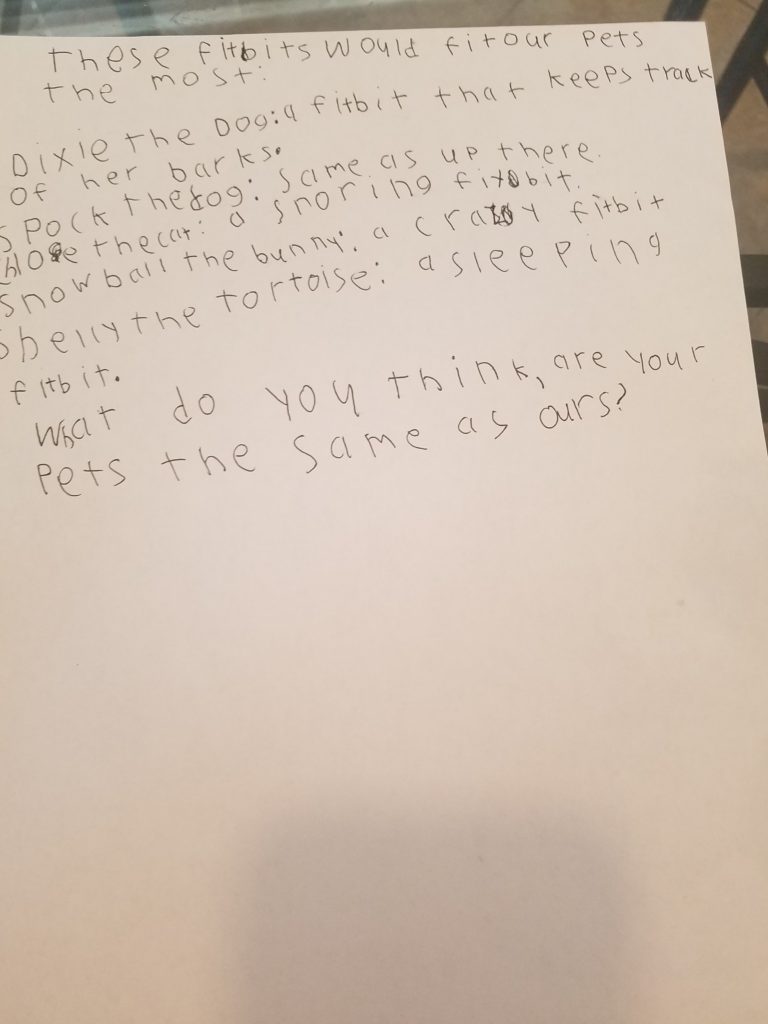 these fitbits would fit our pets
the most:
Dixie the Dog: a fitbit that keeps track
of her barks.
Spock the dog: same as up there.
Chloe the cat: a snoring fitbit.
Snowball the bunny: a crazy fitbit
Shelly the tortoise: a sleeping
fitbit.
What do you think, are your
pets the same as ours?